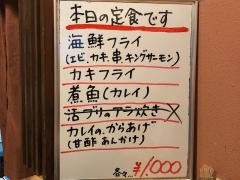 本日の定食です
海鮮フライ
(エビ、カキ、串、キングサーモン)
カキフライ
煮魚(カレイ)
活ブリのアラ炊き
カレイの、からあげ
(甘酢あんかけ)
各々…¥1,000